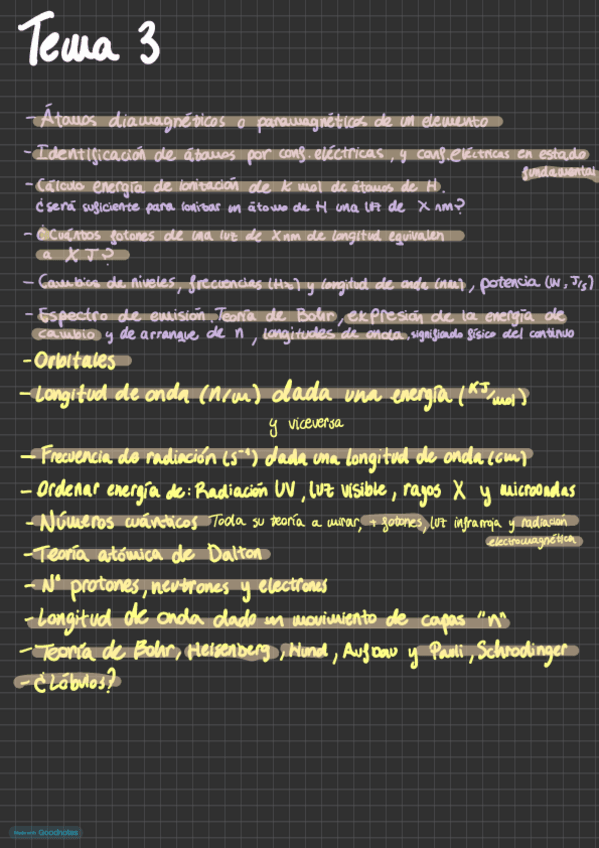 Tema 3
- Átomos diamagnéticos o paramagnéticos de un elemento
- Identificación de átomos por conf. eléctricas, y conf. eléctricas en estado
fundamental
- Cálculo energía de ionización de X mol de átomos de H.
¿será suficiente para ionizar un átomo de H una luz de X nm?
- ¿Cuántos fotones de una luz de X nm de longitud equivalen
a X J?
- Cambios de niveles, frecuencias (Hz) y longitud de onda (nm), potencia (W, J/s)
- Espectro de emisión. Teoría de Bohr, expresión de la energía de
cambio y de arranque de n, longitudes de onda, significado físico del continuo
- Orbitales
- Longitud de onda (n/m) dada una energía (KJ/mol)
y viceversa
- Frecuencia de radiación (s⁻¹) dada una longitud de onda (cm)
- Ordenar energía de: Radiación UV, luz visible, rayos X y microondas
- Números cuánticos Toda su teoría a mirar, + fotones, luz infrarroja y radiación
electromagnética
- Teoría atómica de Dalton
- Nº protones, neutrones y electrones
- Longitud de onda dado un movimiento de capas "n"
- Teoría de Bohr, Heisenberg, Hund, Aufbau y Pauli, Schrodinger
- ¿Lóbulos?
Made with Goodnotes